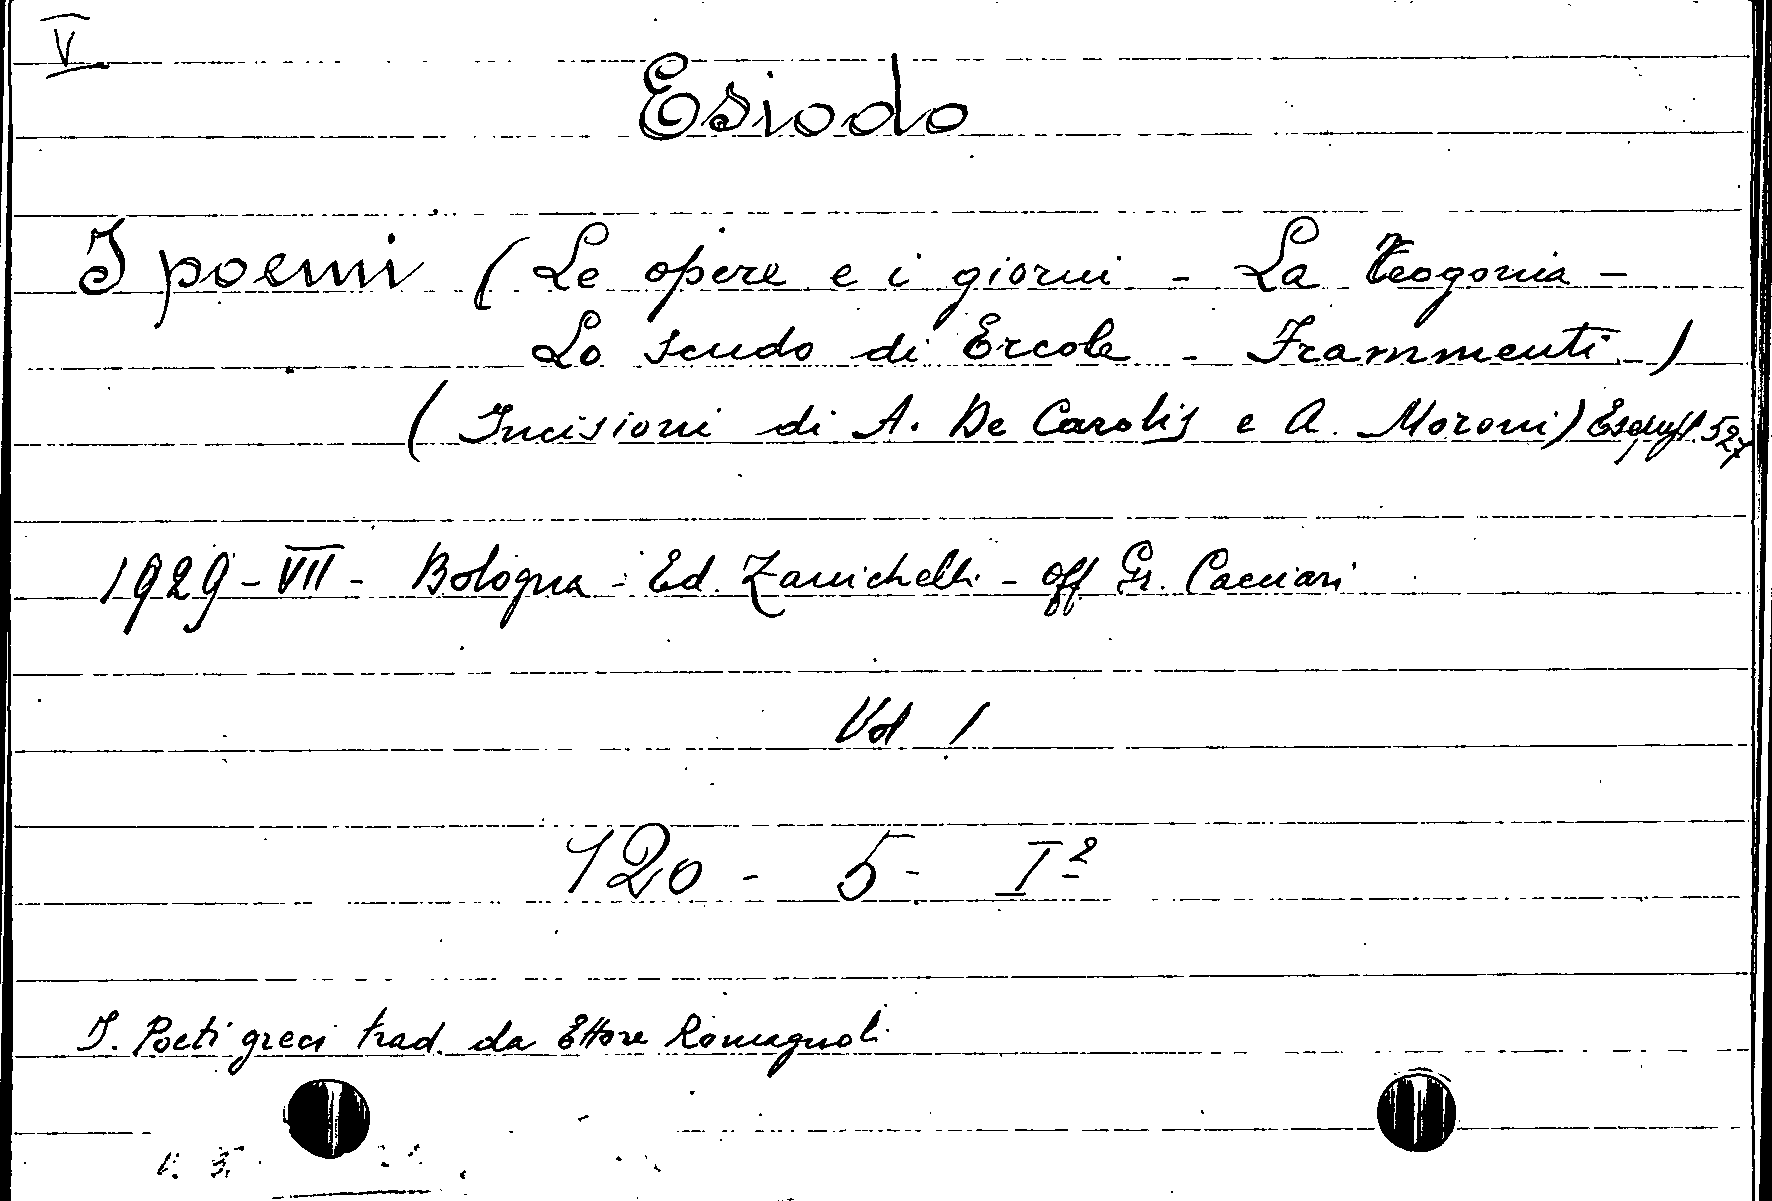 V
Esiodo
I poemi (Le opere e i giorni - La Teogonia -
Lo scudo di Ercole - Frammenti -)
(Incisioni di A. De Carolis e A. Moroni) 527
1929 - VII - Bologna - Ed. Zanichelli - Off Gr. Cacciari
Vol 1
120 - 5 - I 2
I. Poeti greci trad. da Ettore Romagnoli